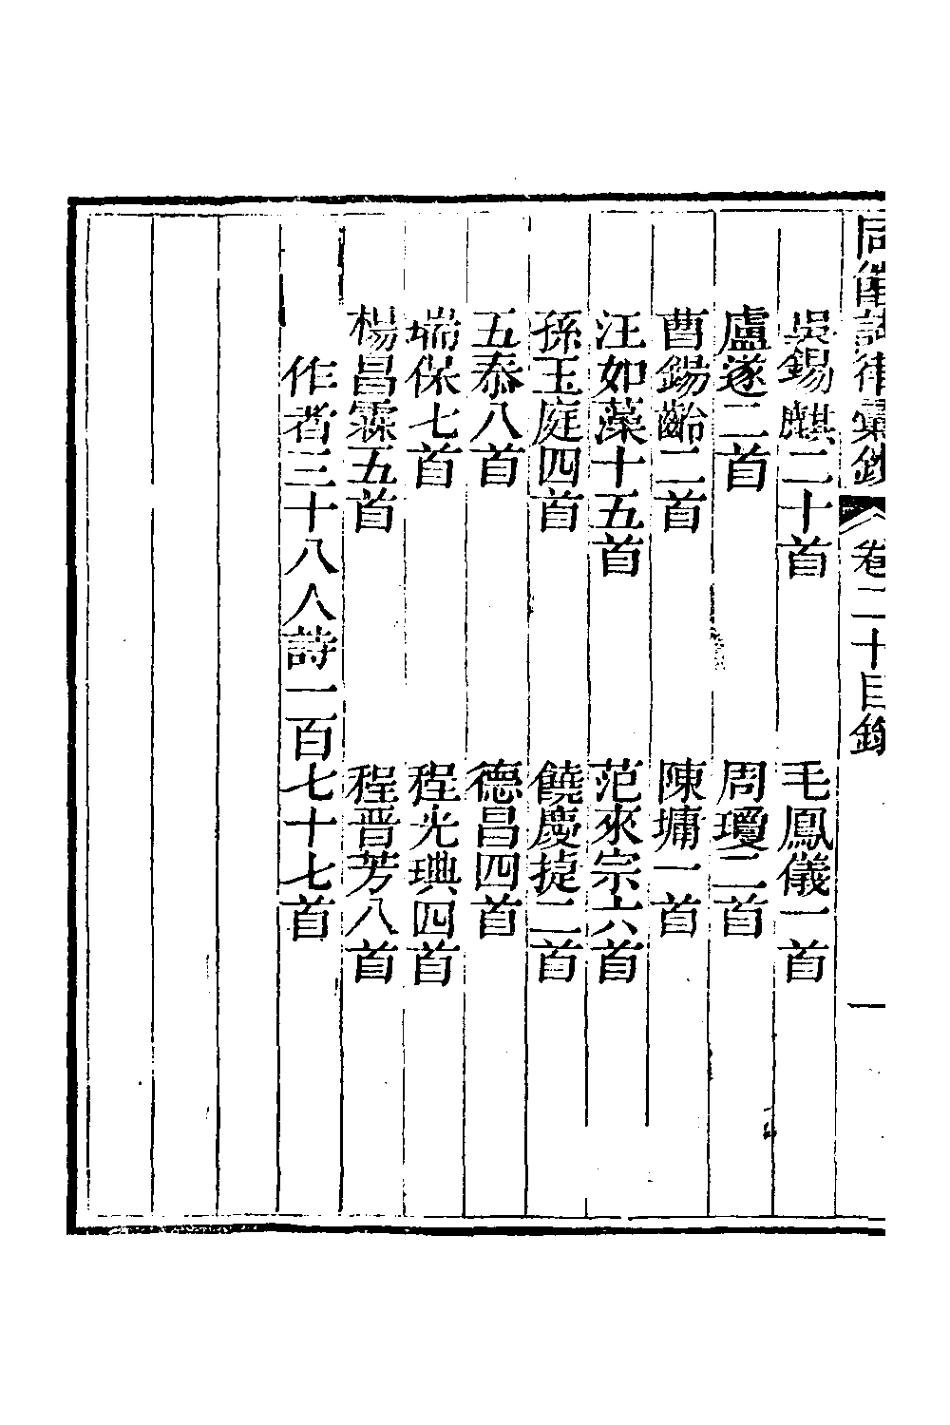 同館詩律彙鈔 卷二十目錄 一
吳錫麒二十首 毛鳳儀一首
盧遂二首 周瓊二首
曹錫齡二首 陳墉一首
汪如藻十五首 范來宗六首
孫玉庭四首 饒慶捷二首
五泰八首 德昌四首
瑞保七首 程光琠四首
楊昌霖五首 程晋芳八首
作者三十八人詩一百七十七首